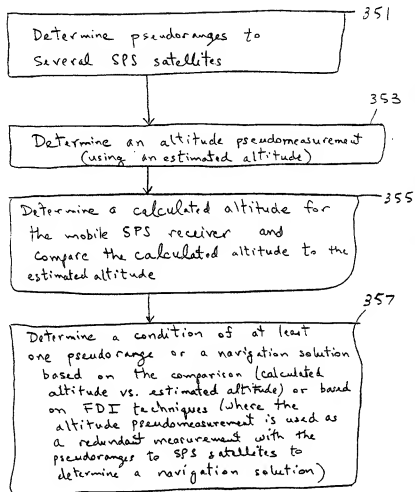 351
Determine pseudoranges to
several SPS satellites
353
Determine an altitude pseudomeasurement
(using an estimated altitude)
355
Determine a calculated altitude for
the mobile SPS receiver and
compare the calculated altitude to the
estimated altitude
357
Determine a condition of at least
one pseudorange or a navigation solution
based on the comparison (calculated
altitude vs. estimated altitude) or based
on FDI techniques (where the
altitude pseudomeasurement is used as
a redundant measurement with the
pseudoranges to SPS satellites to
determine a navigation solution)